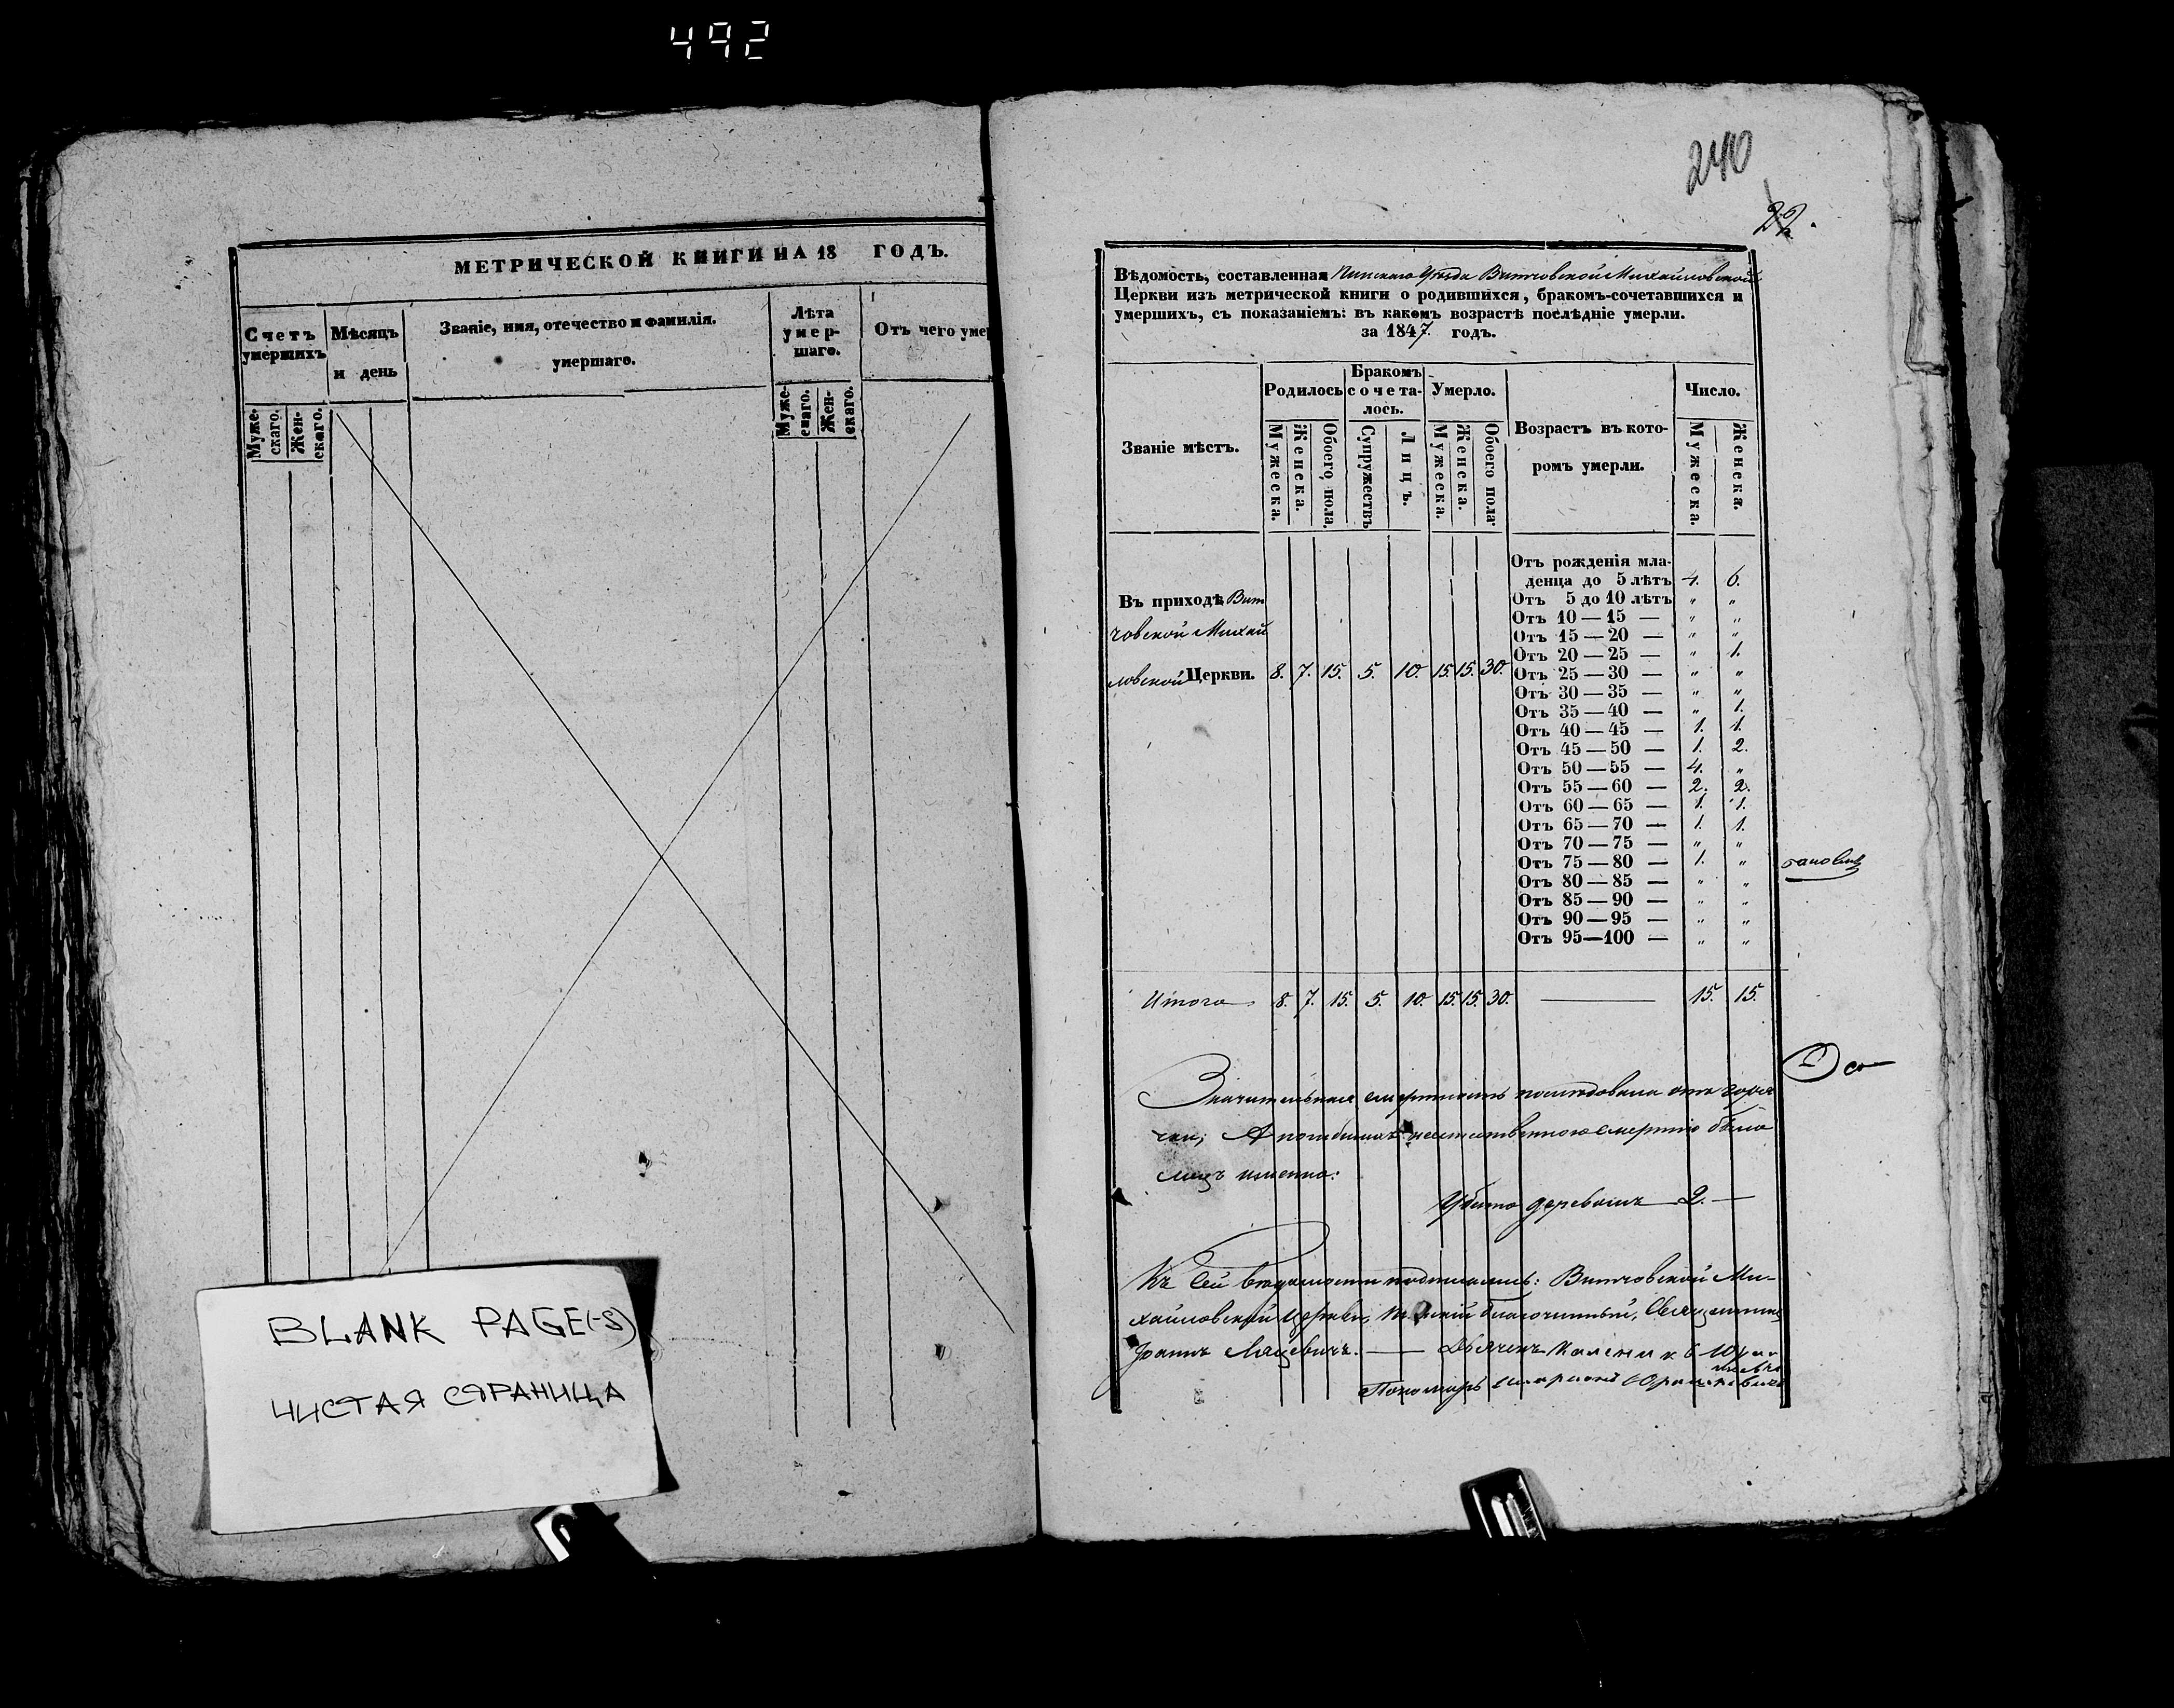 492
МЕТРИЧЕСКОЙ КНИГИ НА 18 ГОДЪ.
Счетъ умершихъ
Мѣсяцъ и день
Званіе, имя, отечество и фамилія.
умершаго.
Лѣта умер-
шаго.
Отъ чего умер
Муже-
скаго.
Жен-
скаго.
Муже-
скаго.
Жен-
скаго.
BLANK PAGE(-S)
ЧИСТАЯ СТРАНИЦА
240
22.
Вѣдомость, составленная Пинскаго Уѣзда Витчовской Михайловской
Церкви изъ метрической книги о родившихся, бракомъ-сочетавшихся и
умершихъ, съ показаніемъ: въ какомъ возрастѣ послѣдніе умерли.
за 1847. годъ.
Званіе мѣстъ.
Родилось
Бракомъ
сочета-
лось.
Умерло.
Возрастъ въ кото-
ромъ умерли.
Число.
Мужеска. Женска. Обоего пола. Супружествъ Лицъ. Мужеска. Женска. Обоего пола. Мужеска. Женска.
Отъ рожденія мла-
денца до 5 лѣтъ 4. 6.
Отъ 5 до 10 лѣтъ " "
Отъ 10 — 15 — " "
Отъ 15 — 20 — " "
Отъ 20 — 25 — " 1.
Отъ 25 — 30 — " "
Отъ 30 — 35 — " "
Отъ 35 — 40 — " 1.
Отъ 40 — 45 — 1. 1.
Отъ 45 — 50 — 1. 2.
Отъ 50 — 55 — 4. "
Отъ 55 — 60 — 2. 2.
Отъ 60 — 65 — 1. 1.
Отъ 65 — 70 — 1. 1.
Отъ 70 — 75 — " "
Отъ 75 — 80 — 1. "
Отъ 80 — 85 — " "
Отъ 85 — 90 — " "
Отъ 90 — 95 — " "
Отъ 95—100 — " "
Въ приходѣ Вит
човской Михай
ловской Церкви. 8. 7. 15. 5. 10. 15. 15. 30.
Итого 8. 7. 15. 5. 10. 15. 15. 30. — 15. 15.
Значительная смертность послѣдовала отъ горя
чки; А погибшихъ неестественною смертію было
именно:
Убито деревомъ — 2. —
Къ сей вѣдомости подписались: Витчовской Ми-
хайловской Церкви, благочинный, Священникъ
Іоаннъ Лицевичъ. — Дьячекъ
Пономарь